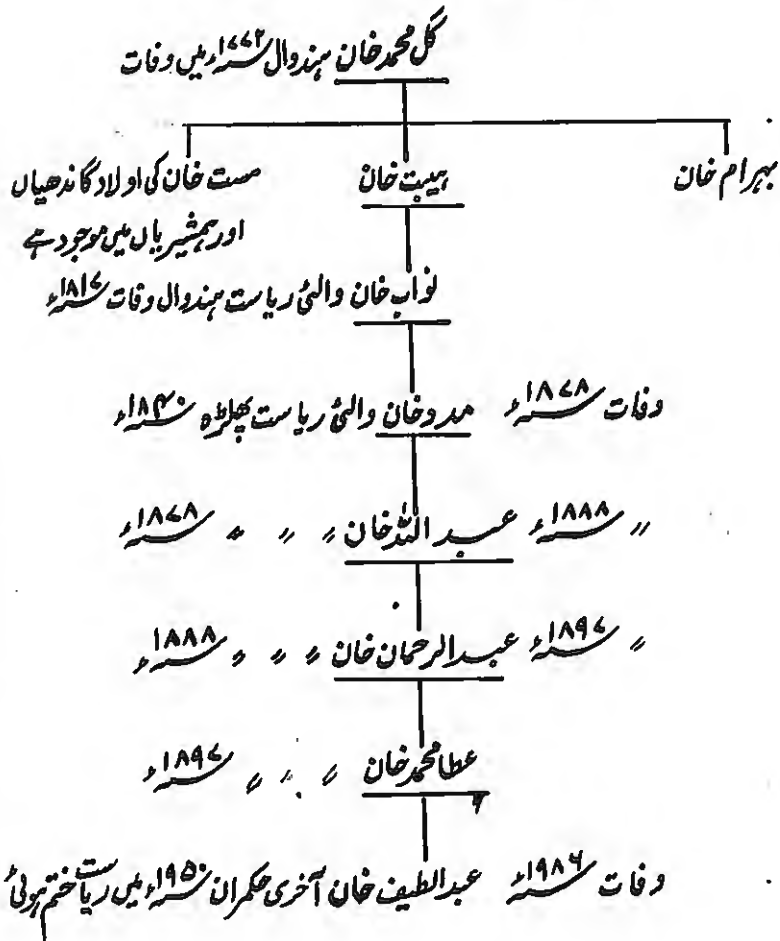 گل محمد خان ہندوال ۱۷۷۲ء میں وفات
بہرام خان ہیبت خان مست خان کی اولاد گاندھیاں
اور ہمشیریاں میں موجود ہے
نواب خان والئ ریاست ہندوال وفات ۱۸۱۷ء
وفات ۱۸۷۸ء مدد خان والئ ریاست پھلڑہ ۱۸۴۰ء
〃 ۱۸۸۸ء عبد اللہ خان 〃 〃 〃 ۱۸۷۸ء
〃 ۱۸۹۷ء عبد الرحمان خان 〃 〃 〃 ۱۸۸۸ء
عطا محمد خان 〃 〃 〃 ۱۸۹۷ء
وفات ۱۹۸۶ء عبد الطیف خان آخری حکمران ۱۹۵۰ء میں ریاست ختم ہوئی